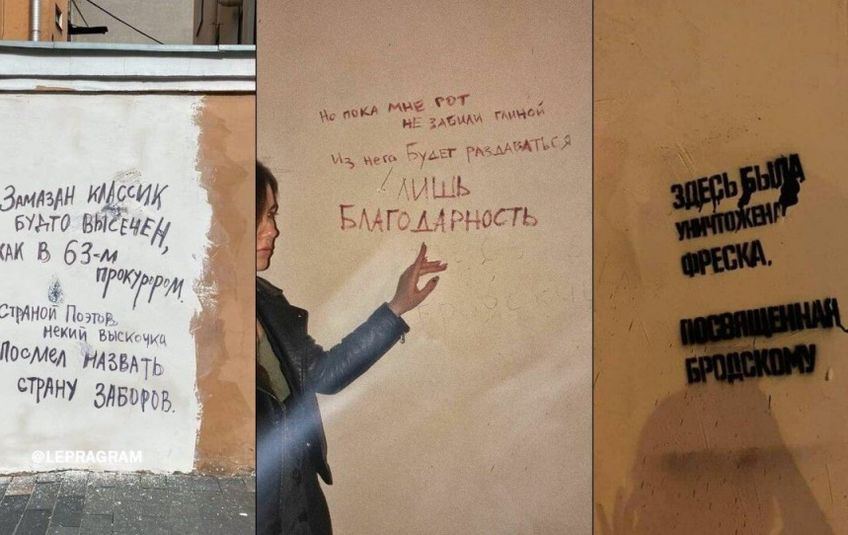 Замазан классик
будто высечен,
как в 63-м
прокурором.
Страной Поэтов
некий выскочка
посмел назвать
страну заборов.
@LEPRAGRAM
Но пока мне рот
не забили глиной
Из него будет раздаваться
лишь
благодарность
ЗДЕСЬ БЫЛА
УНИЧТОЖЕНА
ФРЕСКА,
ПОСВЯЩЕННАЯ
БРОДСКОМУ